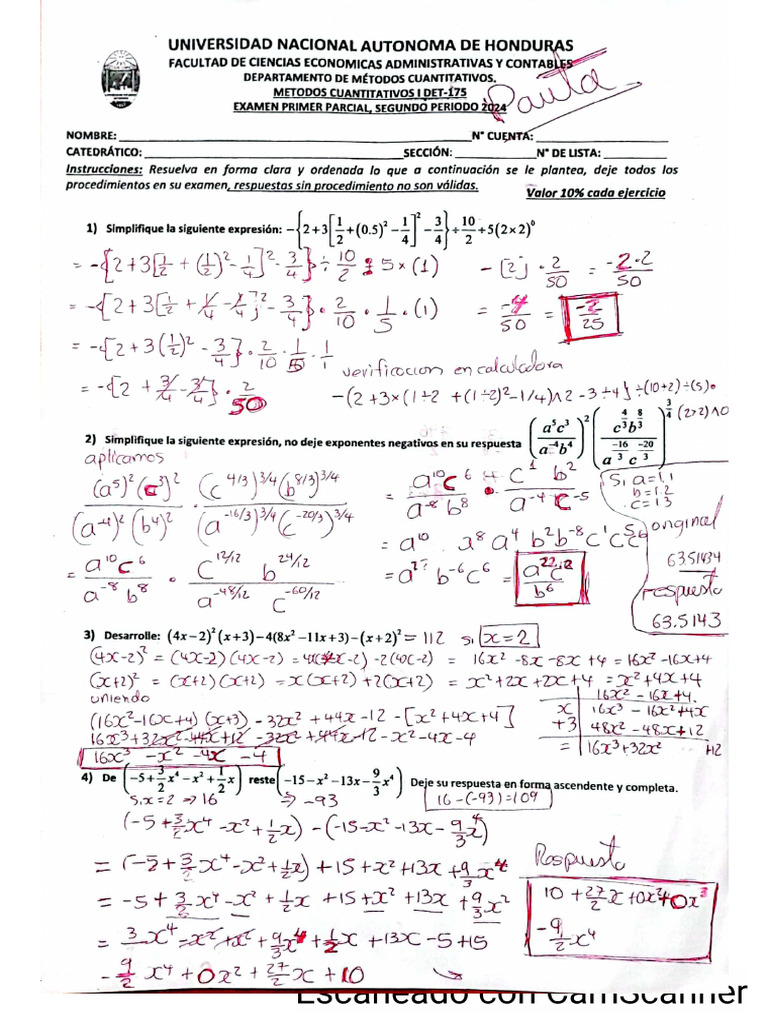 UNIVERSIDAD NACIONAL AUTONOMA DE HONDURAS
FACULTAD DE CIENCIAS ECONOMICAS ADMINISTRATIVAS Y CONTABLES
DEPARTAMENTO DE MÉTODOS CUANTITATIVOS.
METODOS CUANTITATIVOS I DET-175
EXAMEN PRIMER PARCIAL, SEGUNDO PERIODO 2024
Pauta
NOMBRE: ____ N° CUENTA: ____
CATEDRÁTICO: ____ SECCIÓN: ____ N° DE LISTA: ____
Instrucciones: Resuelva en forma clara y ordenada lo que a continuación se le plantea, deje todos los
procedimientos en su examen, respuestas sin procedimiento no son válidas. Valor 10% cada ejercicio
1) Simplifique la siguiente expresión: -{2+3[1/2+(0.5)²-1/4]²-3/4}÷10/2÷5(2×2)⁰
= -{2+3[1/2 + (1/2)² - 1/4]² - 3/4} ÷ 10/2 ÷ 5 × (1) -[2] · 2/50 = -2·2/50
= -{2+3[1/2 + 1/4 - 1/4]² - 3/4} · 2/10 · 1/5 · (1) = -4/50 = -2/25
= -{2+3(1/2)² - 3/4} · 2/10 · 1/5 · 1/1
verificacion en calculadora
= -{2 + 3/4 - 3/4} · 2/50 -(2+3×(1÷2 +(1÷2)²-1/4)∧2 -3÷4} ÷(10÷2)÷(5)·
(2×2)∧0
2) Simplifique la siguiente expresión, no deje exponentes negativos en su respuesta (a⁵c³/a⁻⁴b⁴)² (c^4/3 b^8/3 / a^-16/3 c^-20/3)^3/4
aplicamos
(a⁵)²(c³)²/(a⁻⁴)²(b⁴)² · (c^4/3)^3/4 (b^8/3)^3/4 / (a^-16/3)^3/4 (c^-20/3)^3/4 = a¹⁰c⁶/a⁻⁸b⁸ · c¹b²/a⁻⁴c⁻⁵
Si a=1.1
b=1.2
c=1.3
= a¹⁰ · a⁸ a⁴ b² b⁻⁸ c¹ c⁵ c⁶
original
63.51434
= a¹⁰c⁶/a⁻⁸b⁸ · c^12/12 b^24/12 / a^-48/12 c^-60/12 = a²² b⁻⁶ c¹² = a²²c¹²/b⁶
respuesta
63.5143
3) Desarrolle: (4x-2)²(x+3)-4(8x²-11x+3)-(x+2)² = 112 si x=2
(4x-2)² = (4x-2)(4x-2) = 4x(4x-2) -2(4x-2) = 16x² -8x -8x +4 = 16x² -16x+4
(x+2)² = (x+2)(x+2) = x(x+2)+2(x+2) = x²+2x+2x+4 = x²+4x+4
uniendo
16x² - 16x +4
(16x²-16x+4)(x+3) -32x² +44x -12 -[x²+4x+4] x 16x³ -16x²+4x
16x³+32x²-44x+12 -32x²+44x-12 -x²-4x-4 +3 48x² -48x +12
16x³ -x² -4x -4 = 16x³+32x² +12
4) De (-5+3/2x⁴-x²+1/2x) reste (-15-x²-13x-9/3x⁴) Deje su respuesta en forma ascendente y completa.
Si x=2 => 16 => -93 16-(-93)=109
(-5+3/2x⁴ -x²+1/2x) - (-15-x²-13x-9/3x⁴)
= (-5+3/2x⁴-x²+1/2x) +15+x²+13x+9/3x⁴
Respuesta
= -5+3/2x⁴-x²+1/2x +15+x²+13x+9/3x²
10+27/2x+0x²+0x³
= 3/2x⁴-x²+x²+9/3x⁴+1/2x+13x-5+15
-9/2x⁴
-9/2x⁴+0x²+27/2x+10
Escaneado con CamScanner